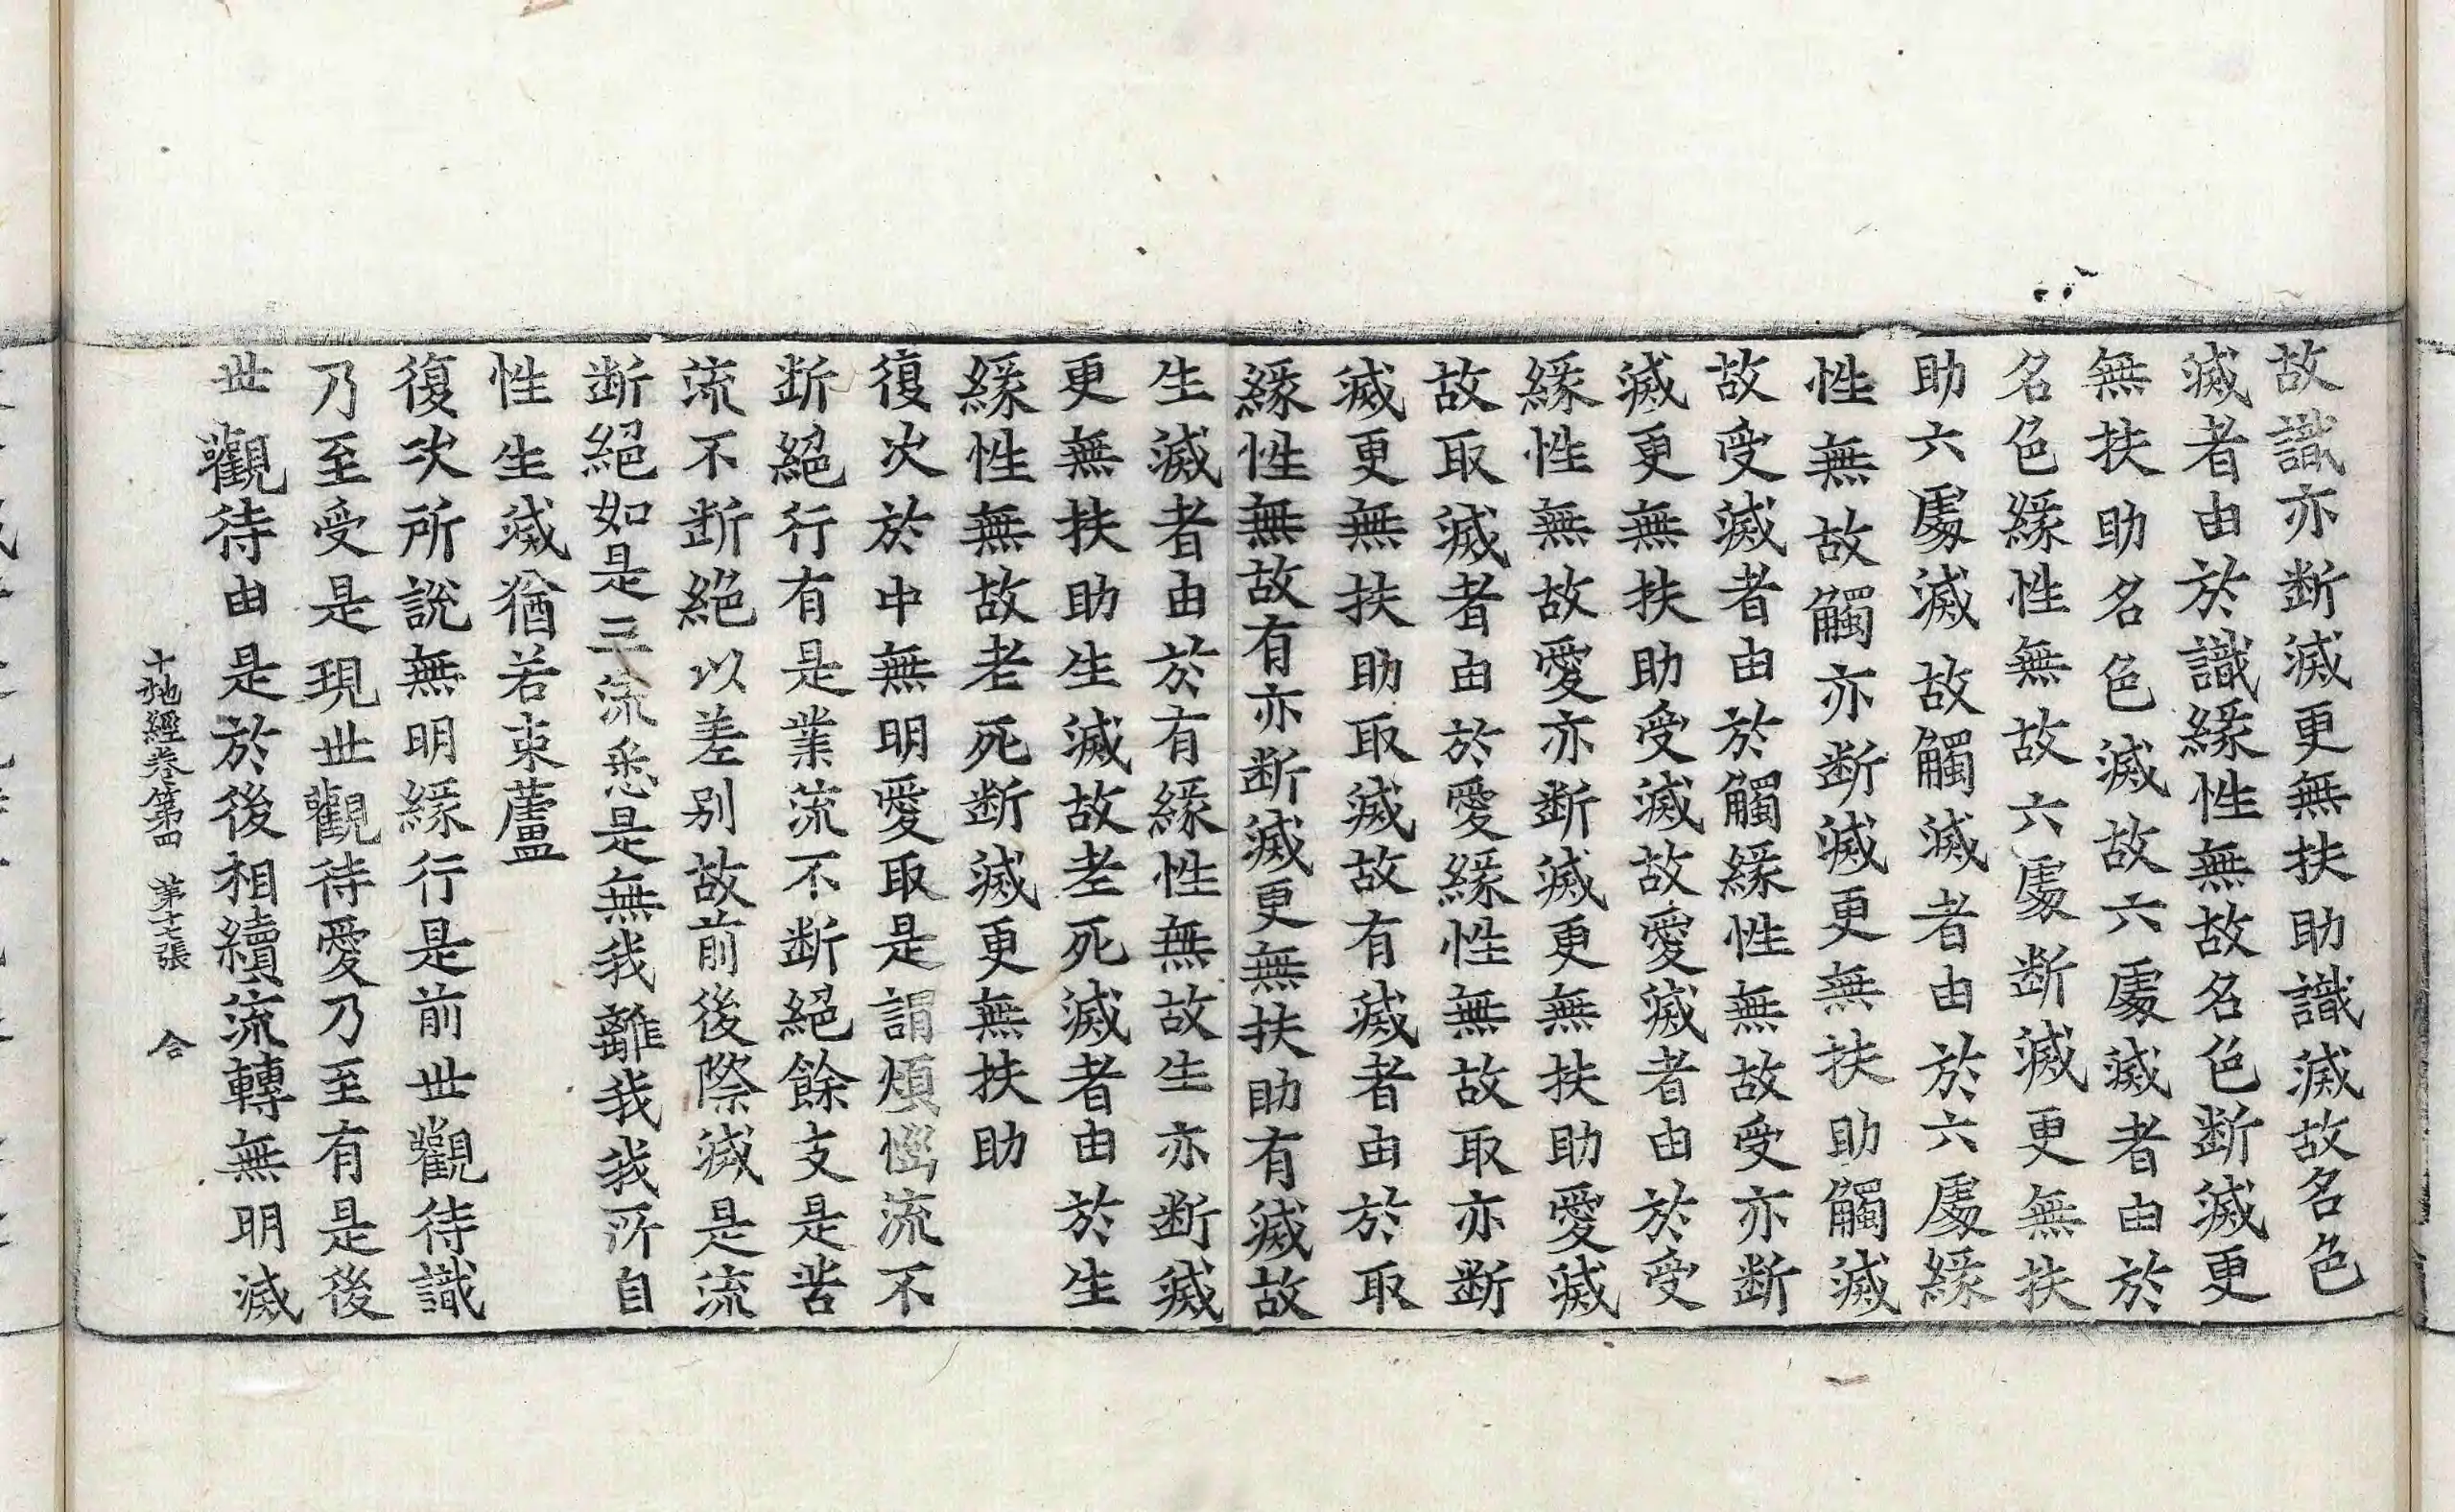 故識亦断滅更無扶助識滅故名色
滅者由於識緣性無故名色断滅更
無扶助名色滅故六處滅者由於
名色緣性無故六處断滅更無扶
助六處滅故觸滅者由於六處緣
性無故觸亦断滅更無扶助觸滅
故受滅者由於觸緣性無故受亦断
滅更無扶助受滅故愛滅者由於受
緣性無故愛亦断滅更無扶助愛滅
故取滅者由於愛緣性無故取亦断
滅更無扶助取滅故有滅者由於取
緣性無故有亦断滅更無扶助有滅故
生滅者由於有緣性無故生亦断滅
更無扶助生滅故老死滅者由於生
緣性無故老死断滅更無扶助
復次於中無明愛取是謂煩惱流不
断絕行有是業流不断絕餘支是苦
流不断絕以差别故前後際滅是流
断絕如是三流悉是無我離我我所自
性生滅猶若束蘆
復次所說無明緣行是前世觀待識
乃至受是現世觀待愛乃至有是後
世觀待由是於後相續流轉無明滅
十地經卷第四 第十七張 合